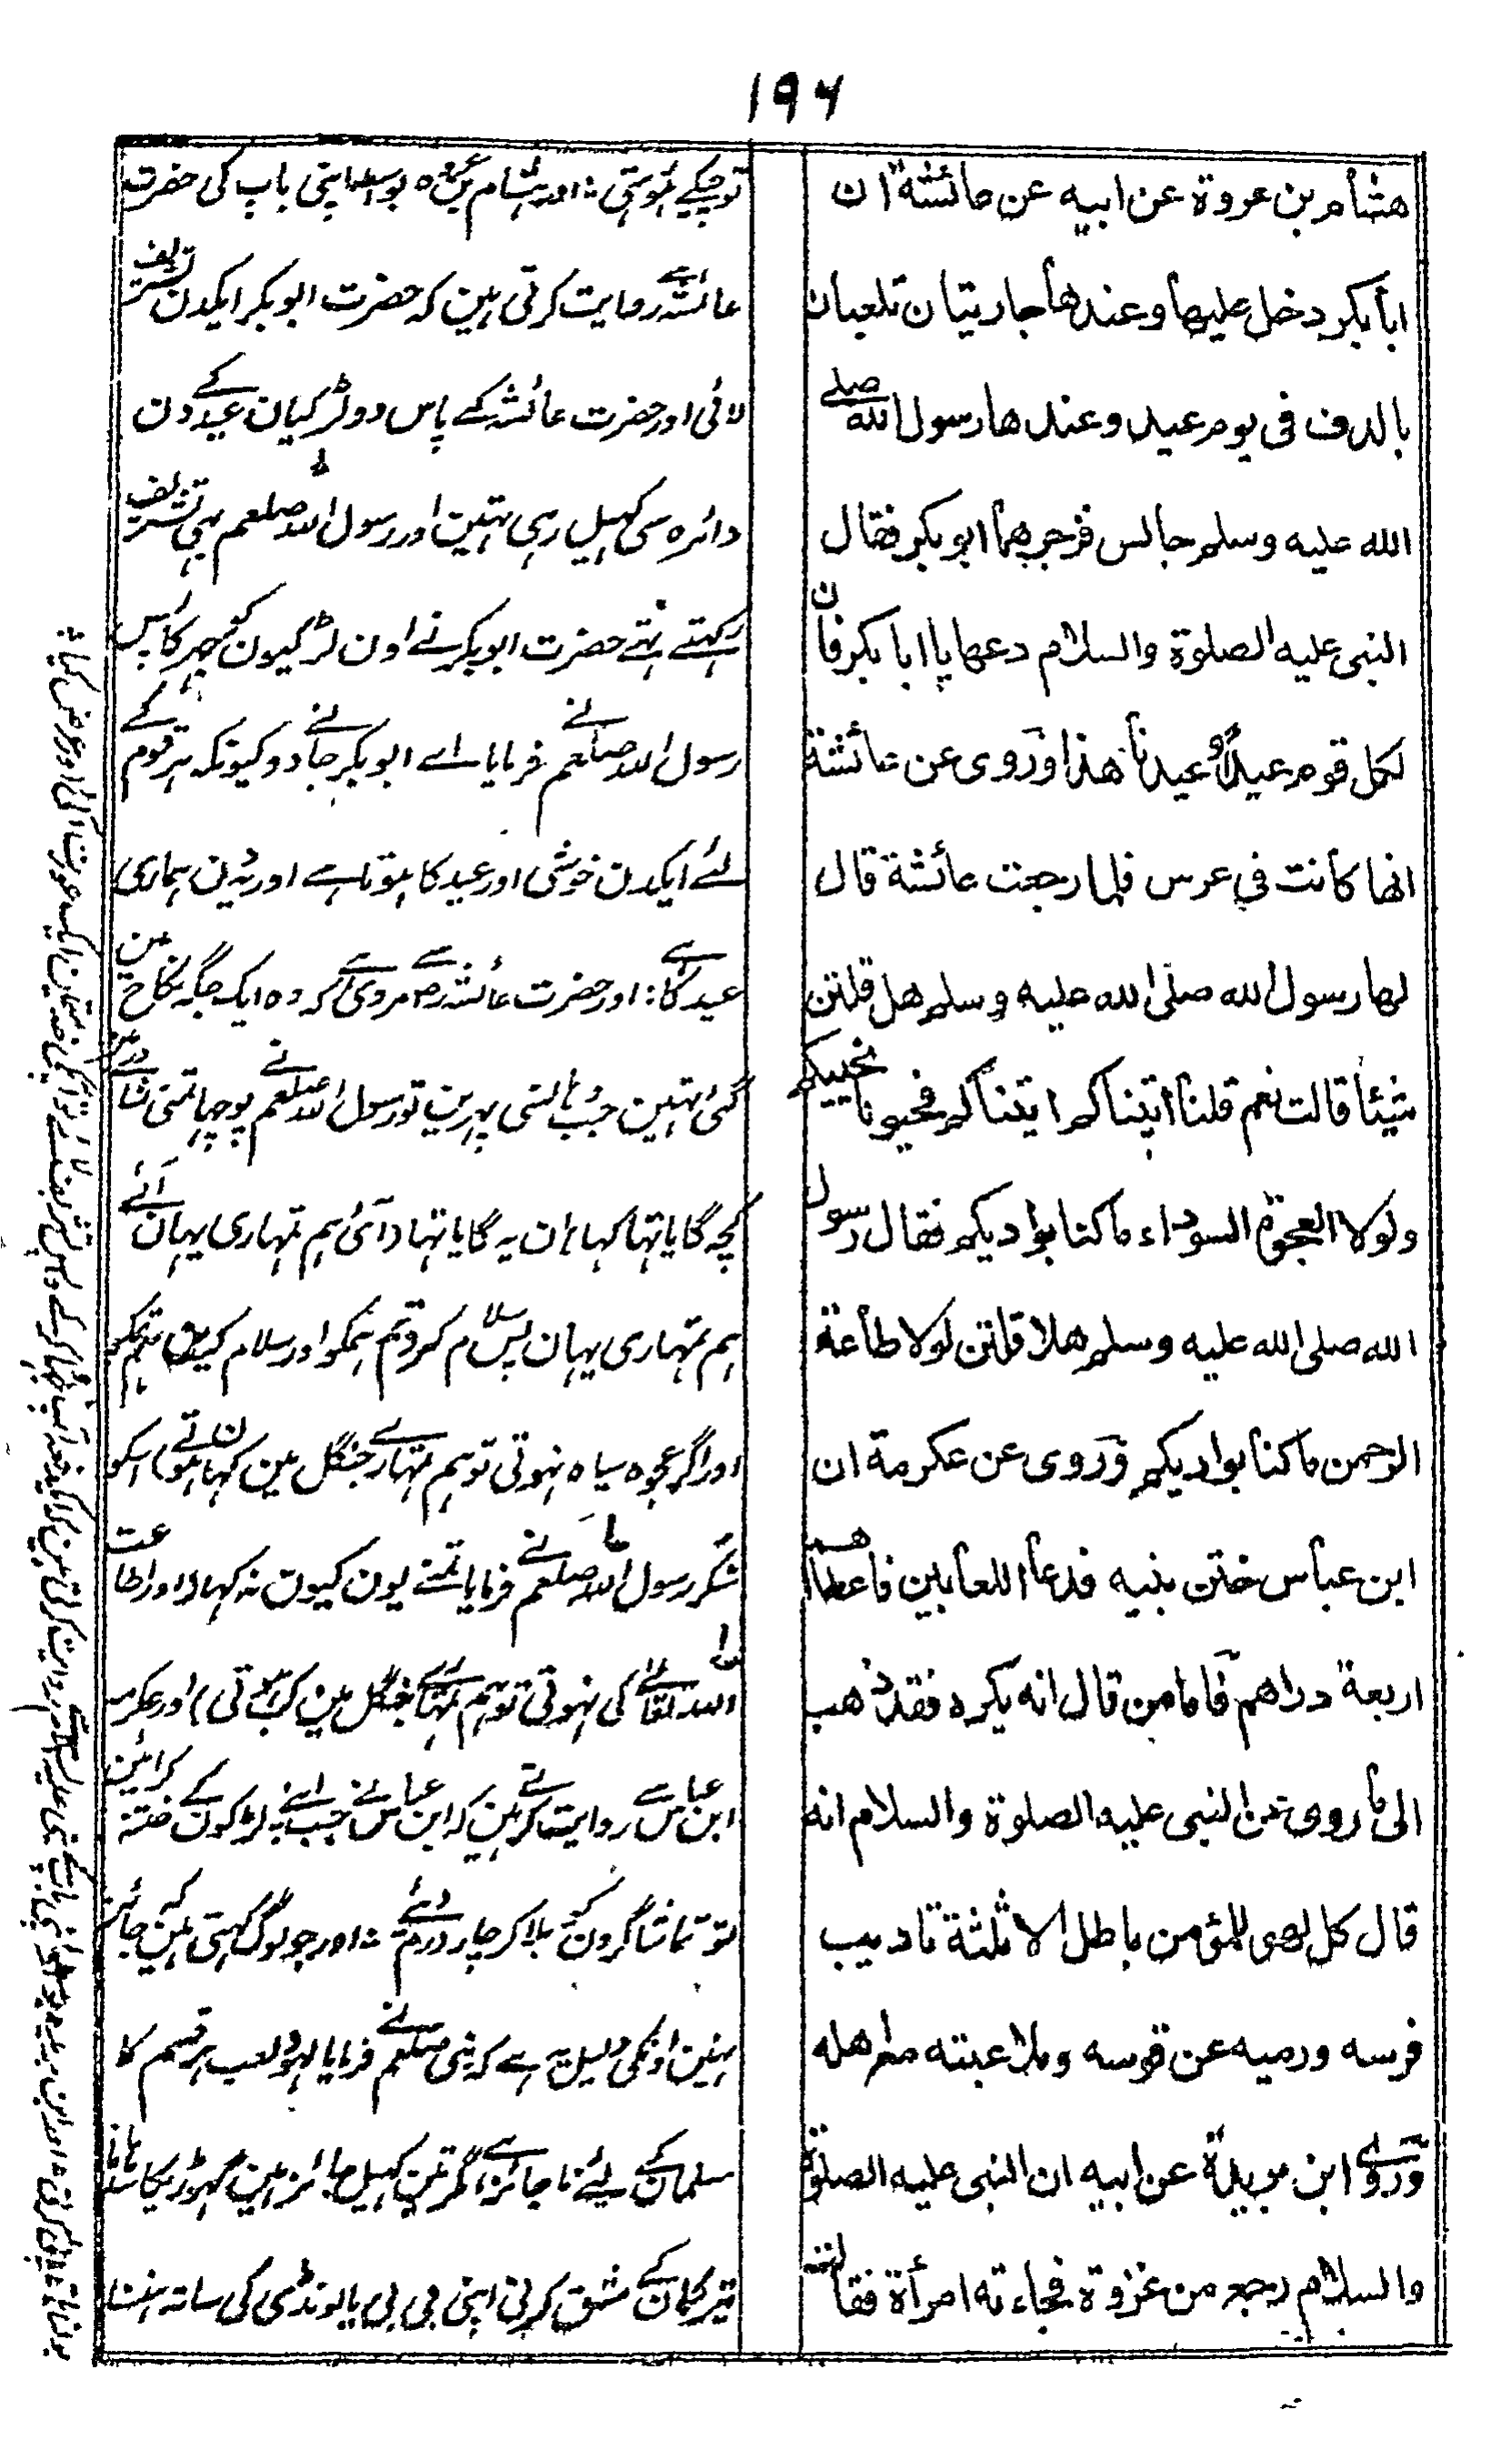 ۱۹۶
هشام بن عروة عن ابيه عن عائشة ان
ابا بكر دخل عليها وعندها جاريتان تلعبان
بالدف فى يوم عيد وعندها رسول الله صلى
الله عليه وسلم جالس فزجرهما ابو بكر فقال
النبى عليه الصلوة والسلام دعها يا ابا بكر فان
لكل قوم عيدا وعيدنا هذا وروى عن عائشة
انها كانت في عرس فلما رجعت عائشة قال
لها رسول الله صلى الله عليه وسلم هل قلتن
شيئا قالت نعم قلنا اتيناكم اتيناكم فحيونا نحييكم
ولولا العجوة السوداء ما كنا بواديكم فقال رسول
الله صلى الله عليه وسلم هلا قلتن لولا طاعة
الرحمن ما كنا بواديكم وروى عن عكرمة ان
ابن عباس ختن بنيه فدعا اللعابين فاعطاهم
اربعة دراهم فاما من قال انه يكره فقد ذهب
الى ما روى عن النبى عليه الصلوة والسلام انه
قال كل لهو للمؤمن باطل الا ثلثة تاديب
فرسه ورميه عن قوسه وملاعبته مع اهله
وروى ابن بريدة عن ابيه ان النبى عليه الصلوة
والسلام رجع من غزوة فجاءته امرأة فقالت
تو چپکے ہوتی : اور ہشام بن عروہ بواسطہ اپنی باپ کی حضرت
عائشہ سے روایت کرتی ہین کہ حضرت ابوبکر ایکدن تشریف
لائی اور حضرت عائشہ کے پاس دو لڑکیان عید کے دن
دائرہ سی کہیل رہی تہین اور رسول اللہ صلعم بہی تشریف
رکہتے تہے حضرت ابوبکر نے اون لڑکیون کو جہرکا پس
رسول اللہ صلعم نے فرمایا اے ابوبکر جانے دو کیونکہ ہر قوم کے
لئے ایکدن خوشی اور عید کا ہوتا ہے اور یہ دن ہماری
عید کا ہے : اور حضرت عائشہ رض سے مروی ہے کہ وہ ایک جگہ نکاح مین
گئی تہین جب وہانسی پہرین تو رسول اللہ صلعم نے پوچہا تمنی
کچہ گایا تہا کہا ہان یہ گایا تہا آئی ہم تمہاری یہان آئے
ہم تمہاری یہان پس سلام کرو تم ہمکو اور سلام کرین ہم تمکو
اور اگر عجوہ سیاہ نہوتی تو ہم تمہارے جنگل مین کہان ہوتے اسکو
سنکر رسول اللہ صلعم نے فرمایا تمنے یون کیون نہ کہا اور اطاعت
اللہ تعالے کی نہوتی تو ہم تمہارے جنگل مین کب آتے اور عکرمہ
ابن عباس سے روایت کرتے ہین کہ ابن عباس نے جب اپنے لڑکون کے ختنہ کرائین
تو تماشاگرون کو بلا کر چار درم دئے : اور جو لوگ کہتی ہین کہ جائز
نہین اونکی دلیل یہ ہے کہ نبی صلعم نے فرمایا لہو ولعب ہر قسم کا
مسلمان کے لیئے ناجائز ہے مگر تین کہیل جائز ہین گہوڑیکا
تیر کمان کے مشق کرنی اپنی بی بی یا لونڈی کی ساتہ ہنسنا